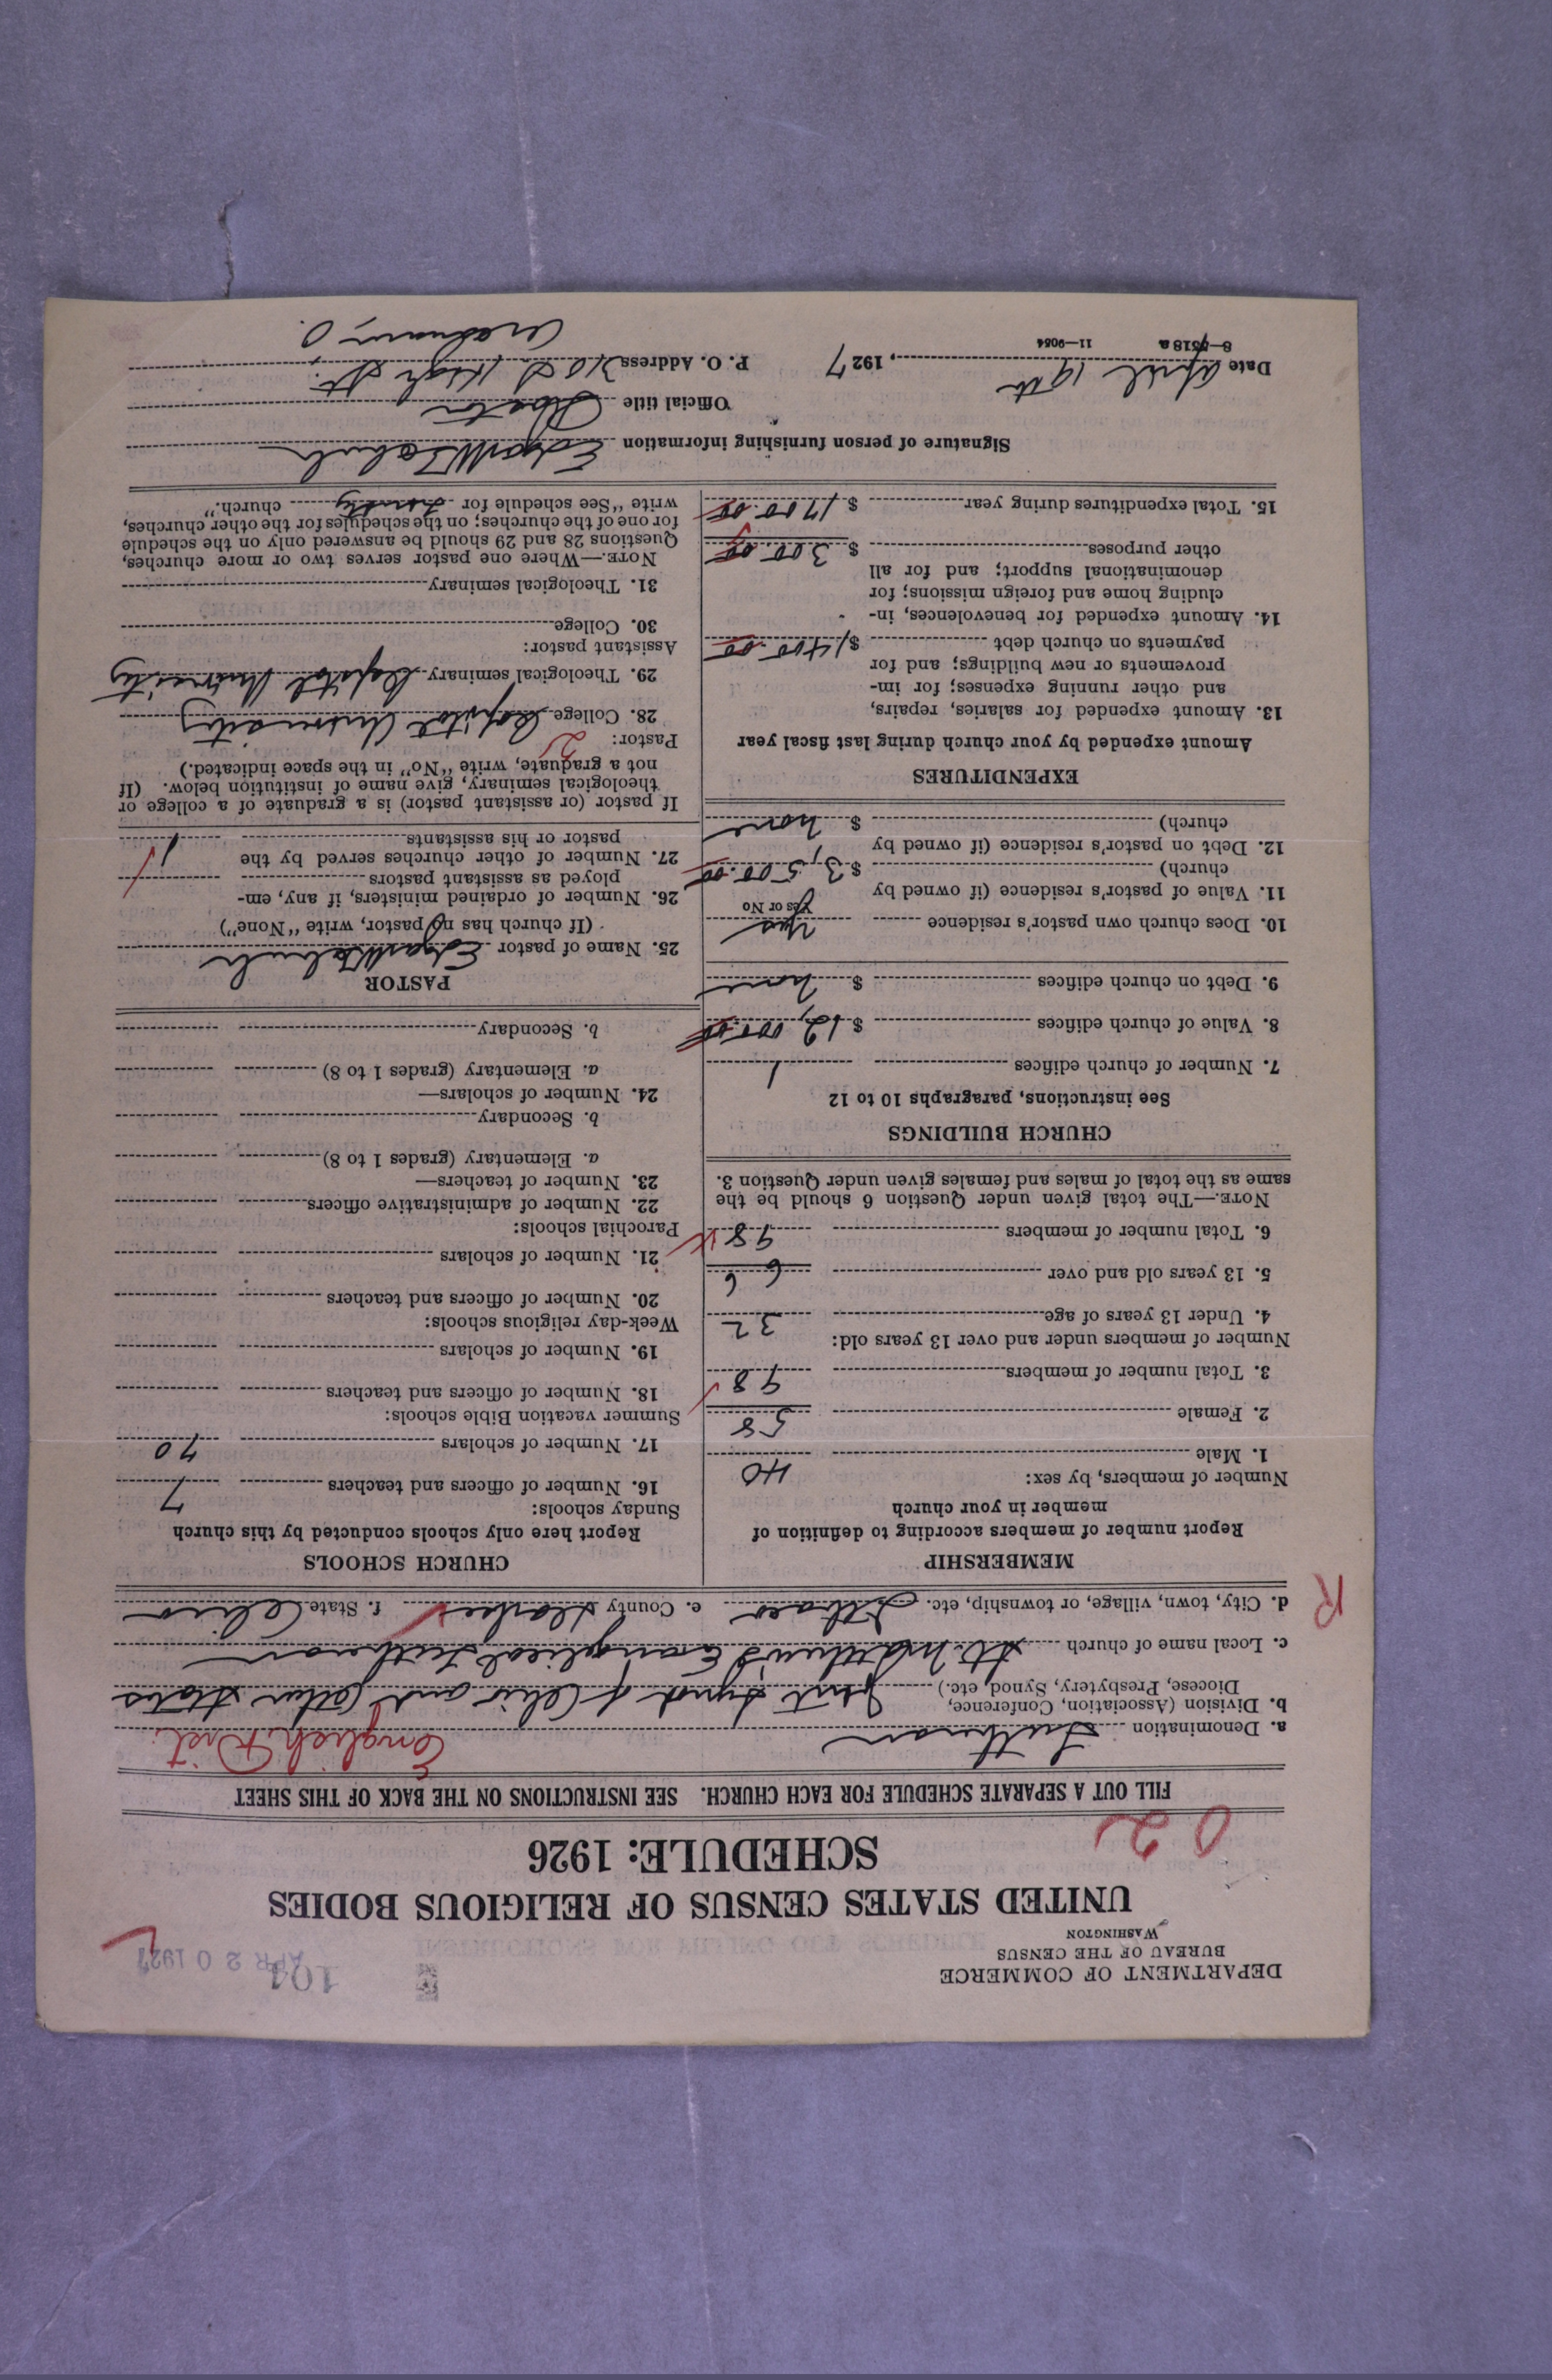 DEPARTMENT OF COMMERCE
BUREAU OF THE CENSUS
WASHINGTON
104
APR 20 1927
UNITED STATES CENSUS OF RELIGIOUS BODIES
SCHEDULE: 1926
0 2
FILL OUT A SEPARATE SCHEDULE FOR EACH CHURCH. SEE INSTRUCTIONS ON THE BACK OF THIS SHEET
a. Denomination Lutheran English Dist.
b. Division (Association, Conference, Diocese, Presbytery, Synod, etc.) Joint Synod of Ohio and Other States
c. Local name of church St. Matthew's Evangelical Lutheran
d. City, town, village, or township, etc. e. County f. State Ohio
R
MEMBERSHIP
Report number of members according to definition of
member in your church
Number of members, by sex:
1. Male 40
2. Female 58
3. Total number of members 98
Number of members under and over 13 years old:
4. Under 13 years of age 32
5. 13 years old and over 66
6. Total number of members 98
NOTE.—The total given under Question 6 should be the
same as the total of males and females given under Question 3.
CHURCH BUILDINGS
See instructions, paragraphs 10 to 12
7. Number of church edifices 1
8. Value of church edifices $ 12,000.00
9. Debt on church edifices $ none
10. Does church own pastor's residence Yes
Yes or No
11. Value of pastor's residence (if owned by
church) $ 3,500.00
12. Debt on pastor's residence (if owned by
church) $ none
EXPENDITURES
Amount expended by your church during last fiscal year
13. Amount expended for salaries, repairs,
and other running expenses; for im-
provements or new buildings; and for
payments on church debt $ 1400.00
14. Amount expended for benevolences, in-
cluding home and foreign missions; for
denominational support; and for all
other purposes $ 300.00
15. Total expenditures during year $ 1700.00
CHURCH SCHOOLS
Report here only schools conducted by this church
Sunday schools:
16. Number of officers and teachers 7
17. Number of scholars 70
Summer vacation Bible schools:
18. Number of officers and teachers
19. Number of scholars
Week-day religious schools:
20. Number of officers and teachers
21. Number of scholars
Parochial schools:
22. Number of administrative officers
23. Number of teachers—
a. Elementary (grades 1 to 8)
b. Secondary
24. Number of scholars—
a. Elementary (grades 1 to 8)
b. Secondary
PASTOR
25. Name of pastor Edgar W.
(If church has no pastor, write "None")
26. Number of ordained ministers, if any, em-
ployed as assistant pastors
27. Number of other churches served by the
pastor or his assistants 1
If pastor (or assistant pastor) is a graduate of a college or
theological seminary, give name of institution below. (If
not a graduate, write "No" in the space indicated.)
Pastor: 2
28. College Capital University
29. Theological seminary Capital University
Assistant pastor:
30. College
31. Theological seminary
NOTE.—Where one pastor serves two or more churches,
Questions 28 and 29 should be answered only on the schedule
for one of the churches; on the schedules for the other churches,
write "See schedule for Trinity church."
Signature of person furnishing information Edgar W.
Official title Pastor
Date April 19th, 1927 P. O. Address High St.
8—7518a 11—9054